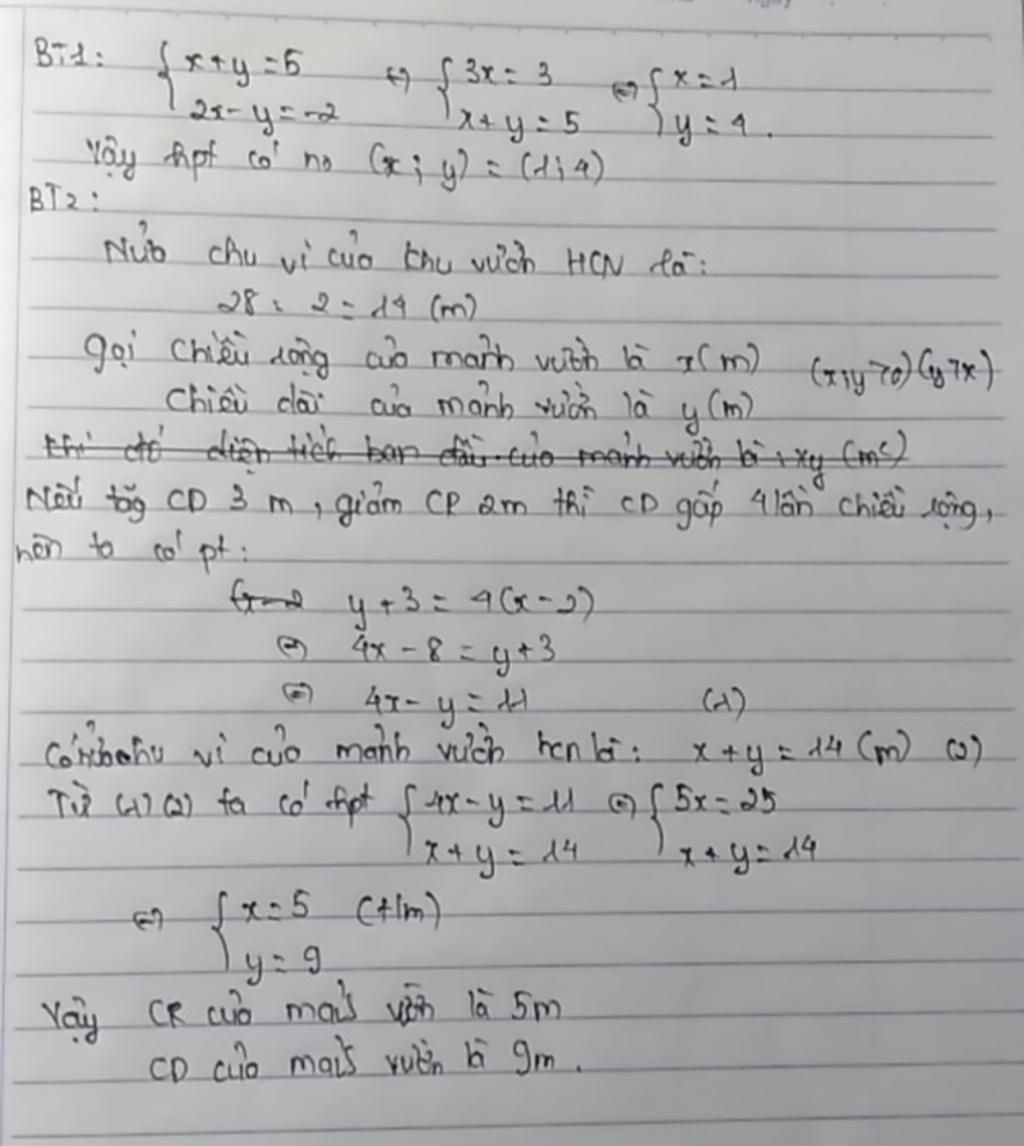 BT1: { x+y=5 ⇔ { 3x=3 ⇔ { x=1
2x-y=-2 x+y=5 y=4.
Vậy hpt có no (x; y) = (1; 4)
BT2:
Nửa chu vi của khu vườn HCN là:
28 : 2 = 14 (m)
Gọi chiều rộng của mảnh vườn là x (m) (x; y > 0) (y > x)
Chiều dài của mảnh vườn là y (m)
Khi đó diện tích ban đầu của mảnh vườn là: xy (m²)
Nếu tăg CD 3 m, giảm CR 2m thì CD gấp 4 lần chiều rộng,
nên ta có pt:
y + 3 = 4(x - 2)
⇔ 4x - 8 = y + 3
⇔ 4x - y = 11 (1)
Có nửa chu vi của mảnh vườn hcn là: x + y = 14 (m) (2)
Từ (1) (2) ta có hpt { 4x - y = 11 ⇔ { 5x = 25
x + y = 14 x + y = 14
⇔ { x = 5 (t/m)
y = 9
Vậy CR của mảnh vườn là 5m
CD của mảnh vườn là 9m.